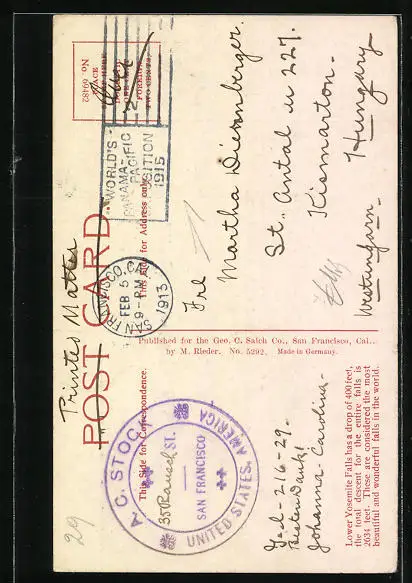 Printed Matter
POST CARD.
No. 69482
PLACE
STAMP HERE
FOREIGN
TWO CENTS.
WORLD'S
PANAMA-
PACIFIC
EXPOSITION
1915
SAN FRANCISCO, CAL.
FEB 5
9-PM
1913
This Side for Address only.
Frl
Martha
St. Antal u 227.
Kismarton.
Westungarn. Hungary
Published for the Geo. C. Salch Co., San Francisco, Cal.,
by M. Rieder. No. 5292. Made in Germany.
This Side for Correspondence.
A. C. STOCK
35 Rausch ST.
SAN FRANCISCO
UNITED STATES, AMERICA
Gal-216-29-
Besten Dank!
Johanna-Carolina-
Lower Yosemite Falls has a drop of 400 feet,
the total descent for the entire falls is
2634 feet. These are considered the most
beautiful and wonderful falls in the world.
29